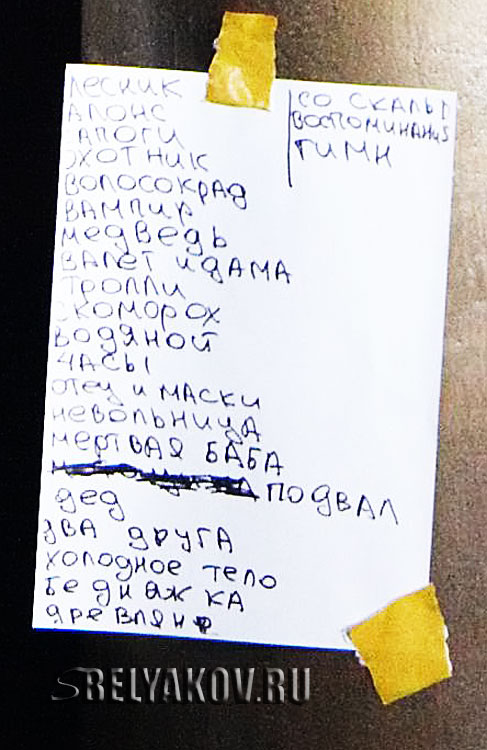 ЛЕСНИК
АЛОНС
АПОГИ
ОХОТНИК
ВОЛОСОКРАД
ВАМПИР
МЕДВЕДЬ
ВАЛЕТ И ДАМА
ТРОЛЛИ
СКОМОРОХ
ВОДЯНОЙ
ЧАСЫ
ОТЕЦ И МАСКИ
НЕВОЛЬНИЦА
МЕРТВАЯ БАБА
ПОДВАЛ
ДЕД
ДВА ДРУГА
ХОЛОДНОЕ ТЕЛО
БЕДНЯЖКА
ДРЕВЛЯНЕ
СО СКАЛЫ
ВОСПОМИНАНИЯ
ГИМН
SRELYAKOV.RU